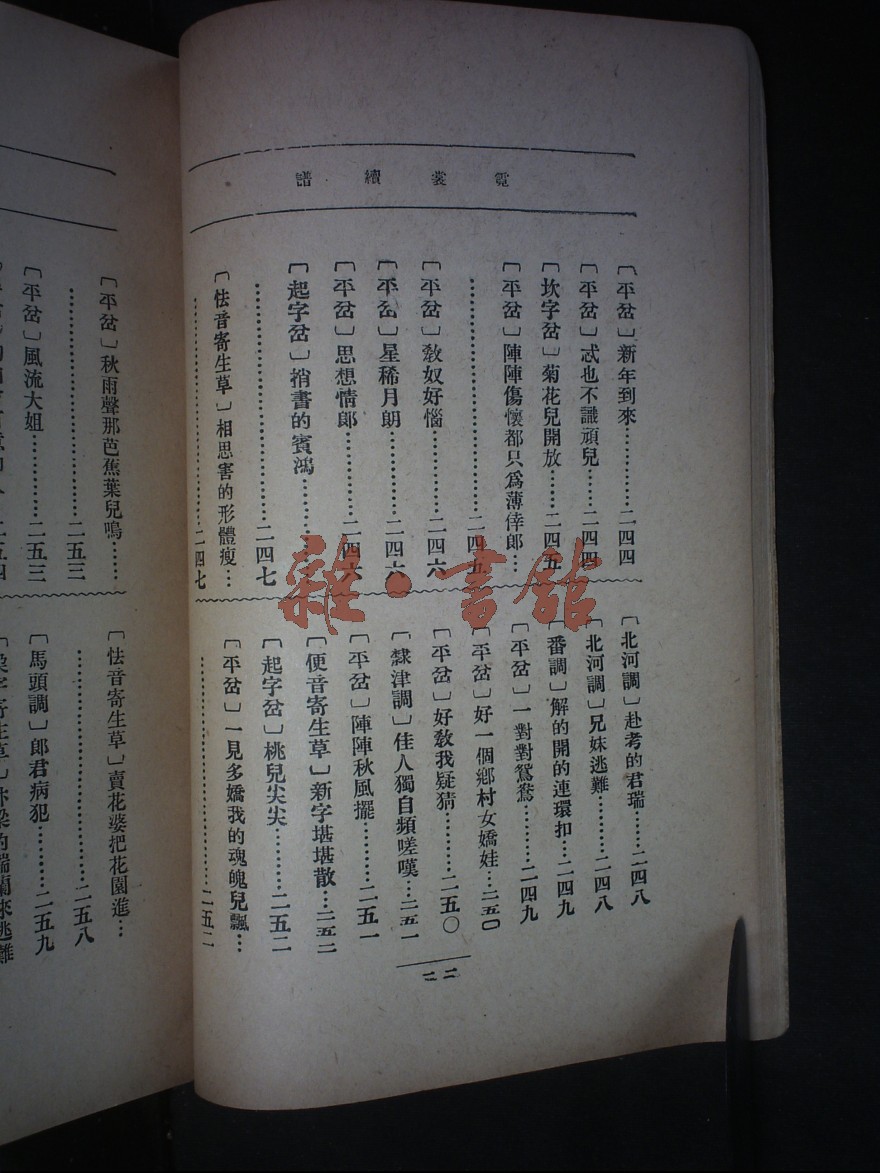 霓裳續譜
〔平岔〕新年到來…………二四四
〔平岔〕忒也不識頑兒……二四四
〔坎字岔〕菊花兒開放……二四五
〔平岔〕陣陣傷懷都只爲薄倖郎…
……………………二四五
〔平岔〕敎奴好惱…………二四六
〔平岔〕星稀月朗…………二四六
〔平岔〕思想情郞…………二四六
〔起字岔〕捎書的賓鴻………
……………………二四七
〔怯音寄生草〕相思害的形體瘦…
……………………二四七
〔北河調〕赴考的君瑞……二四八
〔北河調〕兄妹逃難………二四八
〔番調〕解的開的連環扣…二四九
〔平岔〕一對對鴛鴦………二四九
〔平岔〕好一個鄉村女嬌娃…二五〇
〔平岔〕好敎我疑猜………二五〇
〔隸津調〕佳人獨自頻嗟嘆…二五一
〔平岔〕陣陣秋風擺………二五一
〔便音寄生草〕新字堪堪散…二五二
〔起字岔〕桃兒尖尖………二五二
〔平岔〕一見多嬌我的魂魄兒飄…
……………………二五二
二二
〔平岔〕秋雨聲那芭蕉葉兒鳴……
……………………二五三
〔平岔〕風流大姐…………二五三
二五四
〔怯音寄生草〕賣花婆把花園進…
……………………二五八
〔馬頭調〕郎君病犯………二五九
寄生草〕
瑞蘭來逃難
雜·書館